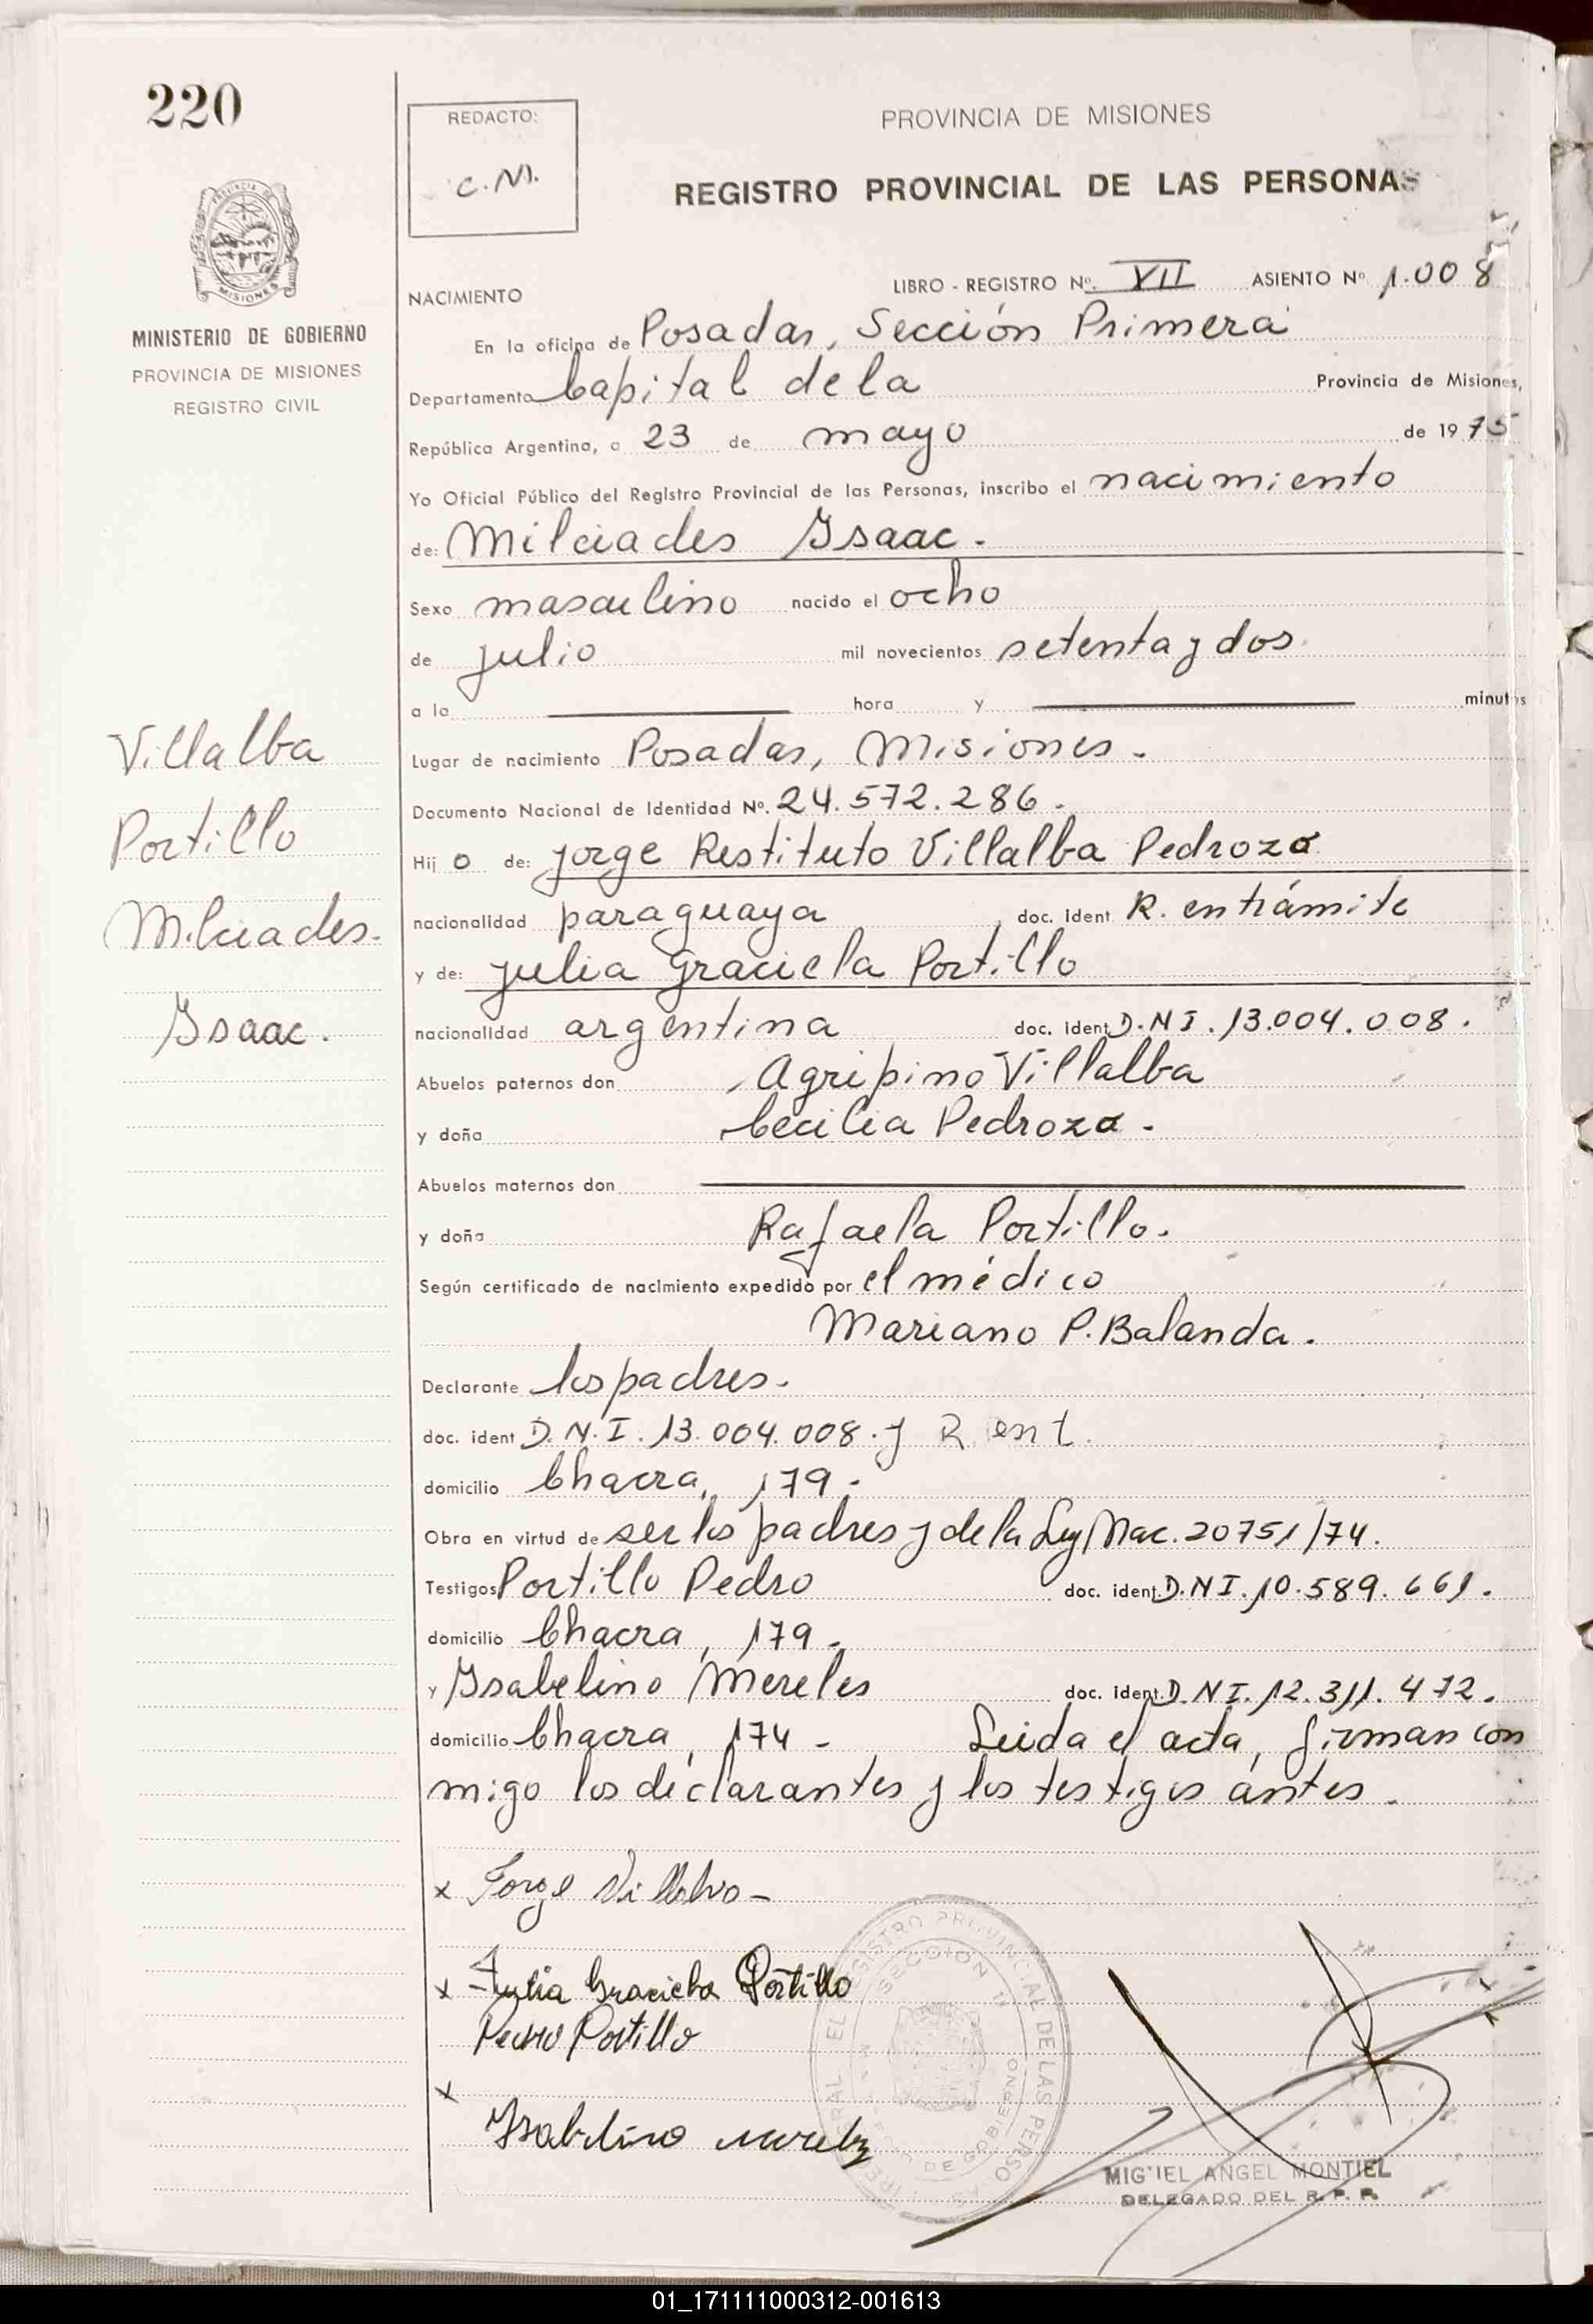 220
REDACTO:
C.M.
PROVINCIA DE MISIONES
REGISTRO PROVINCIAL DE LAS PERSONAS
PROVINCIA DE
MISIONES
MINISTERIO DE GOBIERNO
PROVINCIA DE MISIONES
REGISTRO CIVIL
LIBRO - REGISTRO Nº. VII ASIENTO Nº 1.008
NACIMIENTO
En la oficina de Posadas, Sección Primera
Departamento Capital de la Provincia de Misiones,
República Argentina, a 23 de mayo de 1975
Yo Oficial Público del Registro Provincial de las Personas, inscribo el nacimiento
de: Milciades Isaac.
Sexo masculino nacido el ocho
de julio mil novecientos setenta y dos
a la hora y minutos
Villalba
Portillo
Milciades.
Isaac.
Lugar de nacimiento Posadas, Misiones.
Documento Nacional de Identidad Nº. 24.572.286.
Hij o de: Jorge Restituto Villalba Pedrozo
nacionalidad paraguaya doc. ident R. en trámite
y de: Julia Graciela Portillo
nacionalidad argentina doc. ident D.N I. 13.004.008.
Abuelos paternos don Agripino Villalba
y doña Cecilia Pedroza.
Abuelos maternos don
y doña Rafaela Portillo.
Según certificado de nacimiento expedido por el médico
Mariano P. Balanda.
Declarante los padres.
doc. ident D.N.I. 13.004.008. y R. ent.
domicilio Chacra, 179.
Obra en virtud de ser los padres y de la Ley Nac. 20751/74.
Testigos Portillo Pedro doc. ident. D.N I. 10.589.661.
domicilio Chacra, 179.
y Isabelino Mereles doc. ident. D.N I. 12.311.472.
domicilio Chacra, 174 - Leida el acta, firman con
migo los declarantes y los testigos ántes.
x Jorge Villalva -
x Julia Graciela Portillo
Pedro Portillo
x
Isabelino Mereles
REGISTRO PROVINCIAL DE LAS PERSO
SECCION 1ª
DE GOBIERNO
MIGUEL ANGEL MONTIEL
DELEGADO DEL R. P. P.
01_171111000312-001613